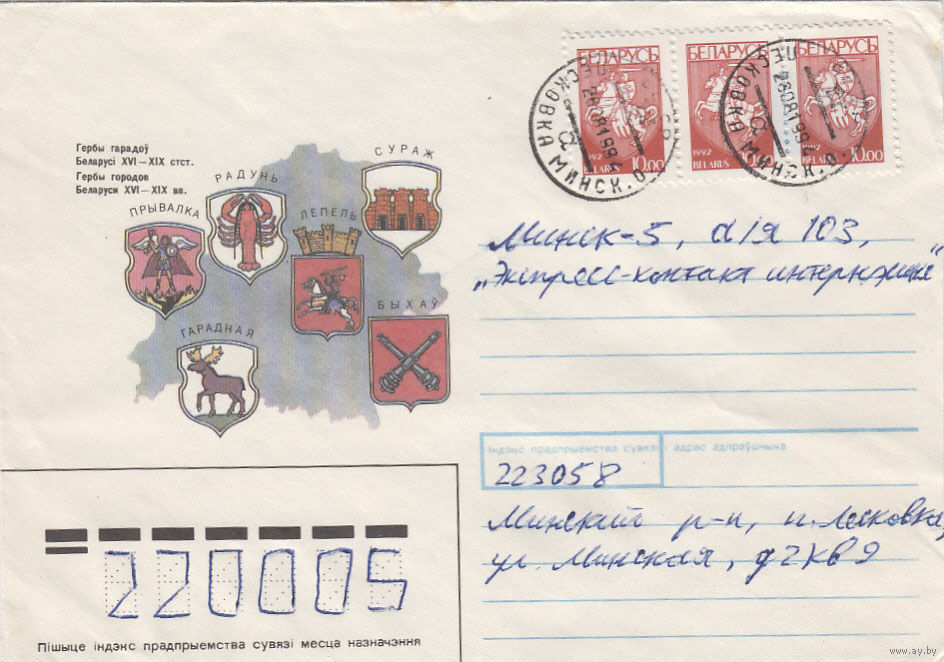 Гербы гарадоў
Беларусі XVI—XIX стст.
Гербы городов
Беларуси XVI—XIX вв.
ПРЫВАЛКА
РАДУНЬ
СУРАЖ
ЛЕПЕЛЬ
ГАРАДНАЯ
БЫХАЎ
БЕЛАРУСЬ
1992
BELARUS
10.00
БЕЛАРУСЬ
1992
BELARUS
10.00
БЕЛАРУСЬ
1992
BELARUS
10.00
ЛЕСКОВКА МИНСК. О.
ЛЕСКОВКА МИНСК. О.
Минск-5, а/я 103,
„Экспресс-контакт
Індэкс прадпрыемства сувязі адрас адпраўшчыка
223058
Минский р-н, п. Лесковка,
ул. Минская, д2 кв 9
220005
Пішыце індэкс прадпрыемства сувязі месца назначэння
www.ay.by